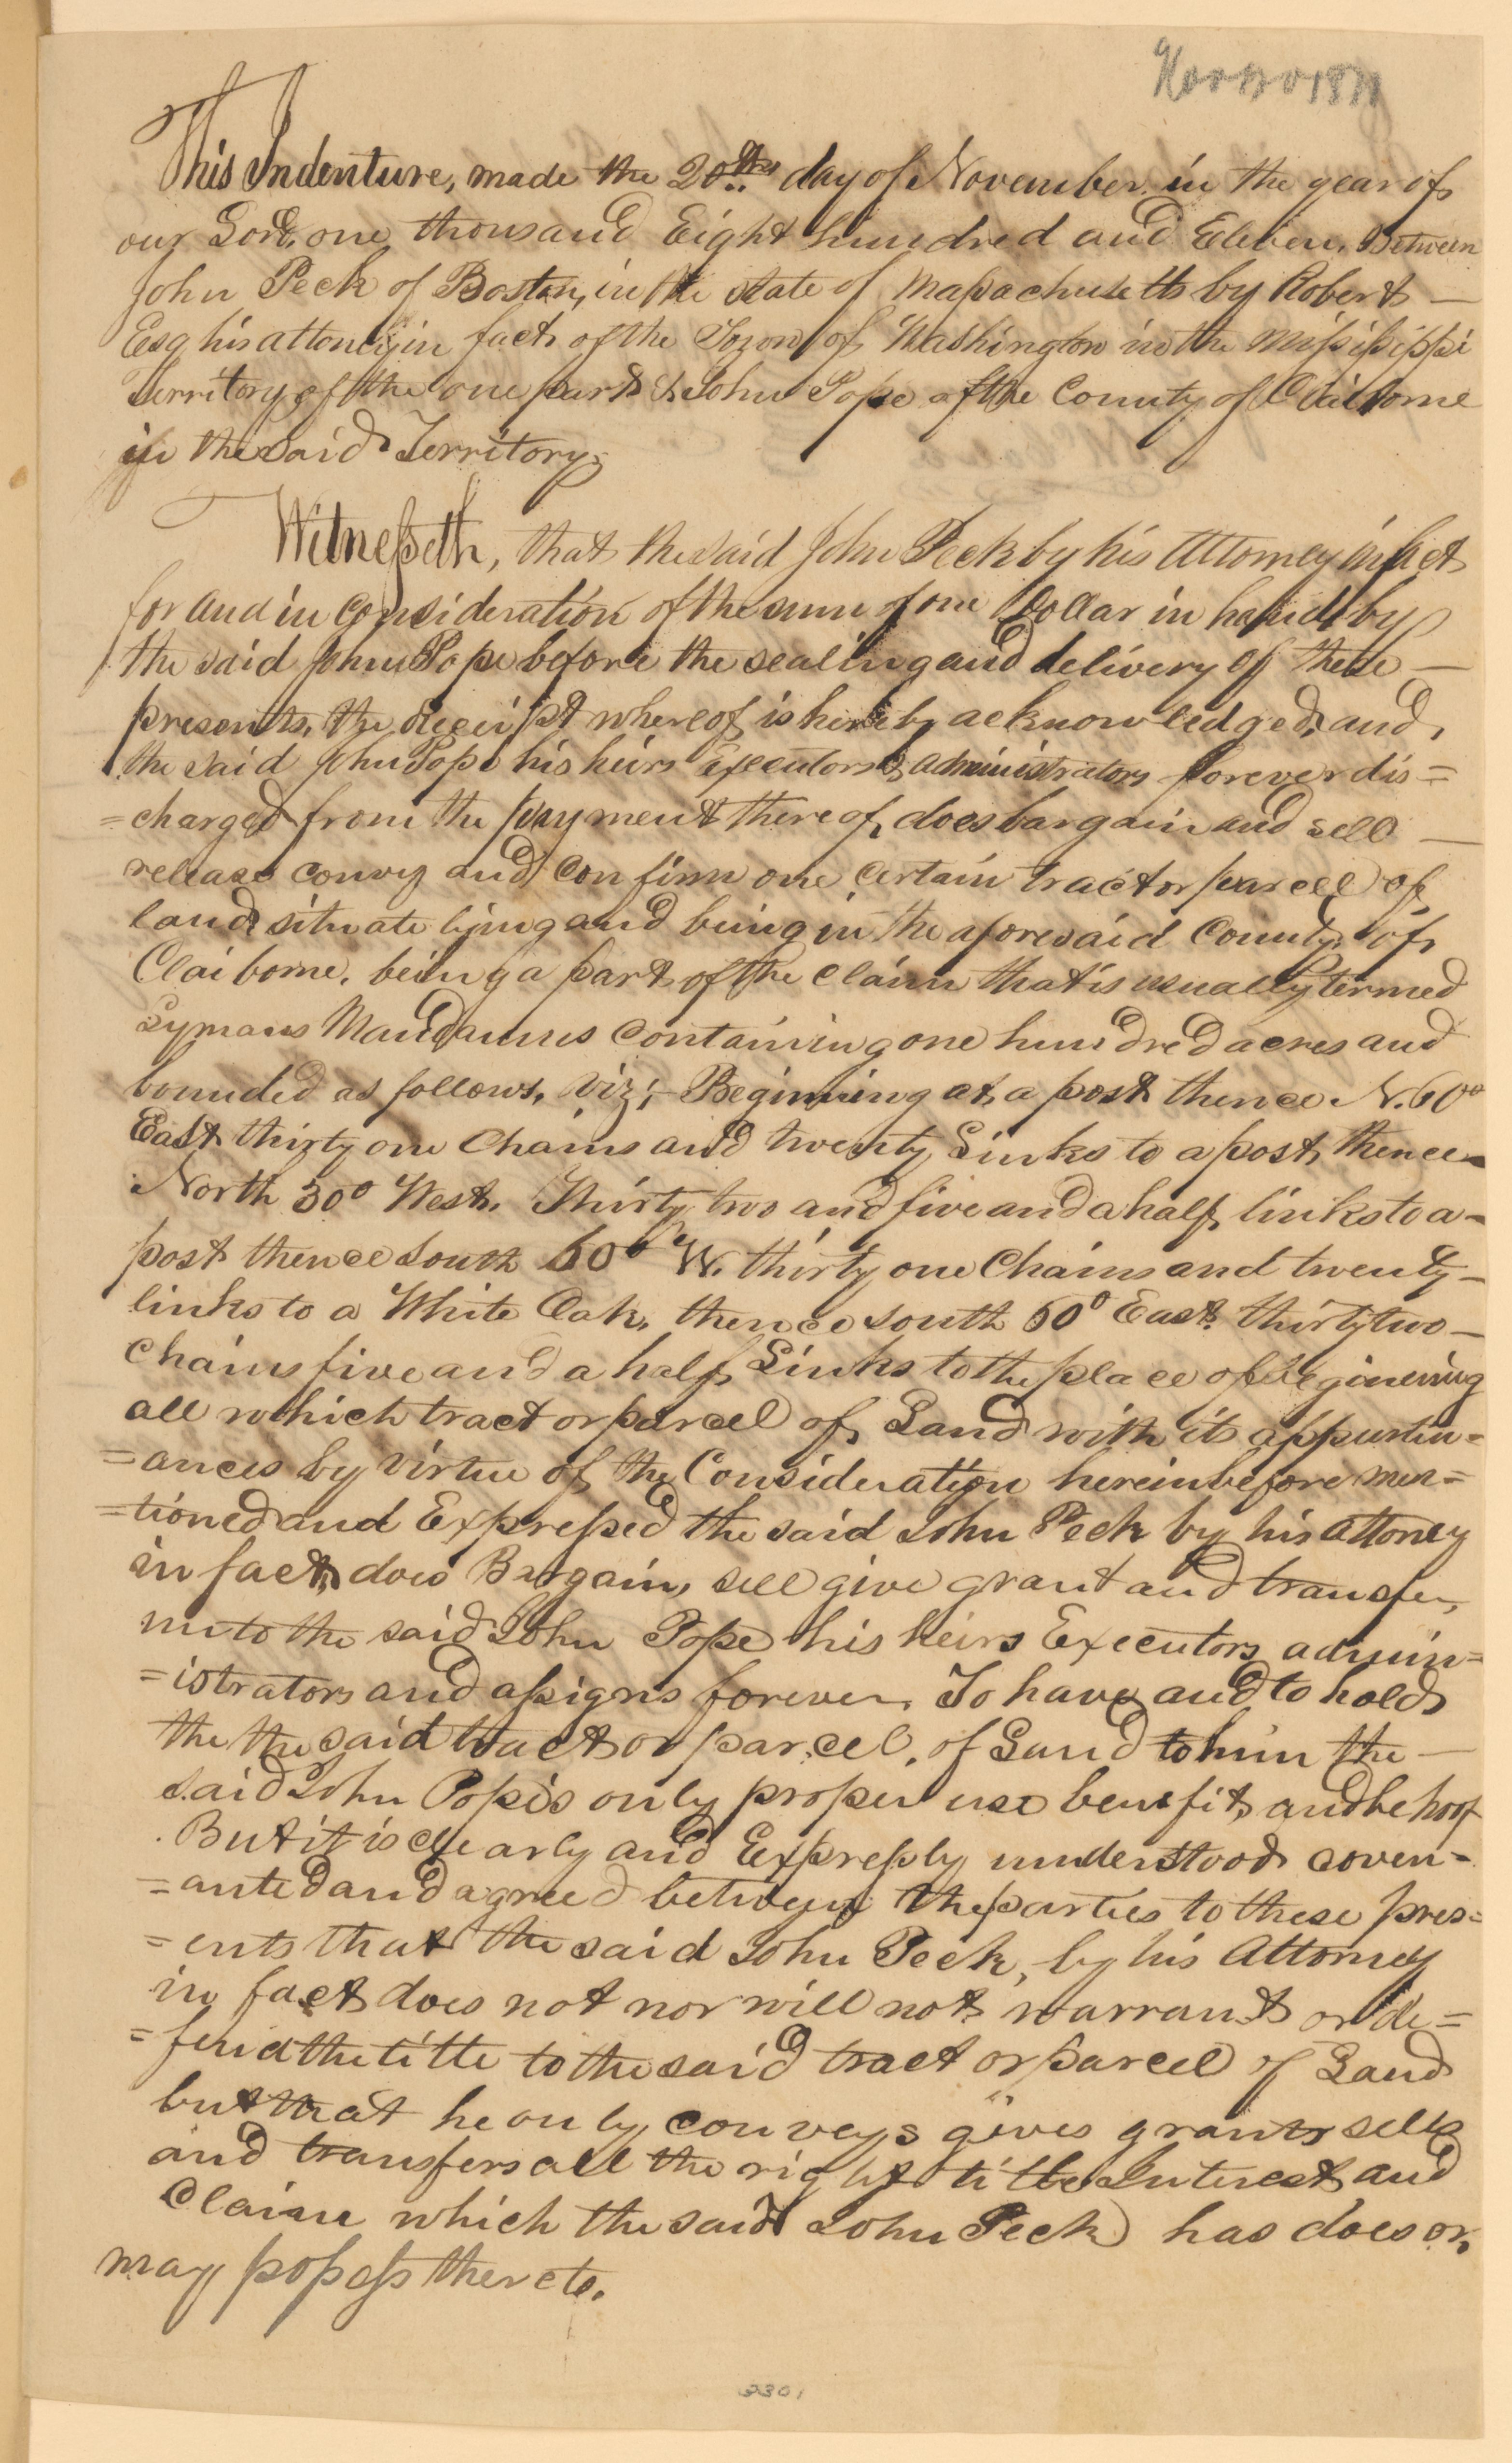 Nov 20 1811
This Indenture, made the 20th day of November in the year of
our Lord, one thousand Eight hundred and Eleven. Between
John Peck of Boston, in the state of Massachusetts by Robert —
Esq his attorney in fact of the Town of Washington in the Missisippi
Territory of the one part & John Pope of the County of Claiborne
in the said Territory.
Witnesseth, that the said John Peck by his Attorney in fact
for and in consideration of the sum of one Dollar in hand by
the said John Pope before the sealing and delivery of these —
presents, the receipt whereof is hereby acknowledged, and,
the said John Pope his heirs Executors & administrators forever dis=
=charged from the payment thereof, does bargain and sell —
release convey and confirm one certain tract or parcell of
land situate lying and being in the aforesaid County of
Claiborne. being a part of the claim that is usually termed
Lymans Mandamus containing one hundred acres and
bounded as follows, viz;– Beginning at a post thence N. 60°
East thirty one Chains and twenty Links to a post, thence–
North 30° West. Thirty two and five and a half links to a–
post thence South 60° W. thirty one Chains and twenty–
links to a White Oak, thence South 60° East. thirty two–
Chains five and a half Links to the place of begining
all which tract or parcel of Land with its appurtin=
=ances by virtue of the Consideration hereinbefore men=
=tioned and Expressed the said John Peck by his attorney
in fact, does Bargain, sell give grant and transfer,
unto the said John Pope his heirs Executors admin=
=istrators and assigns forever. To have and to hold
the the said tract or parcel, of Land to him the —
said John Pope's only proper use benefit, and behoof
But it is clearly and Expressly understood coven=
=anted and agreed between the parties to these pres=
=ents that the said John Peck, by his Attorney
in fact does not nor will not warrant or de=
=fend the title to the said tract or parcel of Land
but that he only conveys gives grants sells
and transfers all the right title Interest and
Claim which the said John Peck has does or,
may possess thereto.
2301